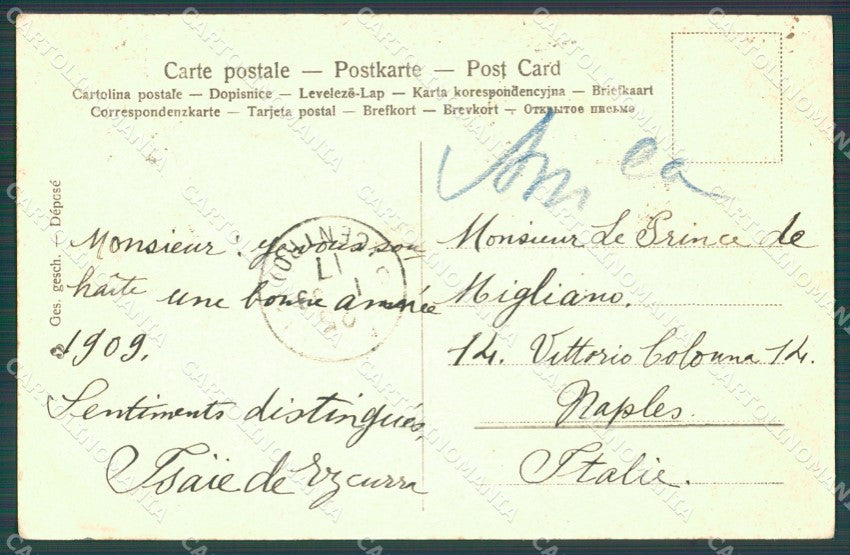 Carte postale — Postkarte — Post Card
Cartolina postale — Dopisnice — Levelező-Lap — Karta korespondencyjna — Briefkaart
Correspondenzkarte — Tarjeta postal — Brefkort — Brevkort — Открытое письмо
Ges. gesch. — Déposé
Monsieur: je vous sou-
haite une bonne année
1909.
Sentiments distingués,
Isaïe de Ezcurra
CENTRO
17
Monsieur Le Prince de
Migliano.
14. Vittorio Colonna 14.
Naples.
Italie.
CARTOLINOMANIA